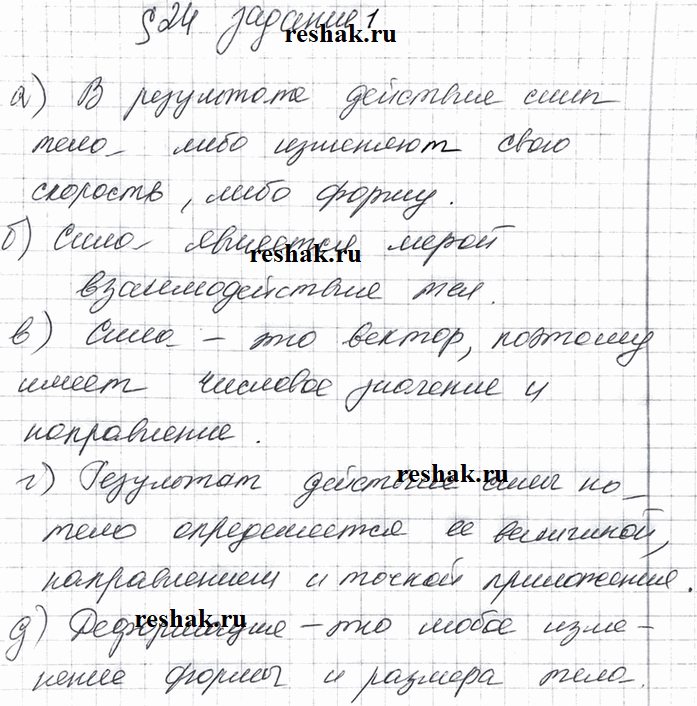 §24 задание 1
reshak.ru
а) В результате действия силы
тела либо изменяют свою
скорость, либо форму.
б) Сила является мерой
reshak.ru
взаимодействия тел.
в) Сила – это вектор, поэтому
имеет числовое значение и
направление.
г) Результат действия силы на
reshak.ru
тело определяется её величиной,
направлением и точкой приложения.
д) Деформация – это любое изме-
reshak.ru
нение формы и размера тела.